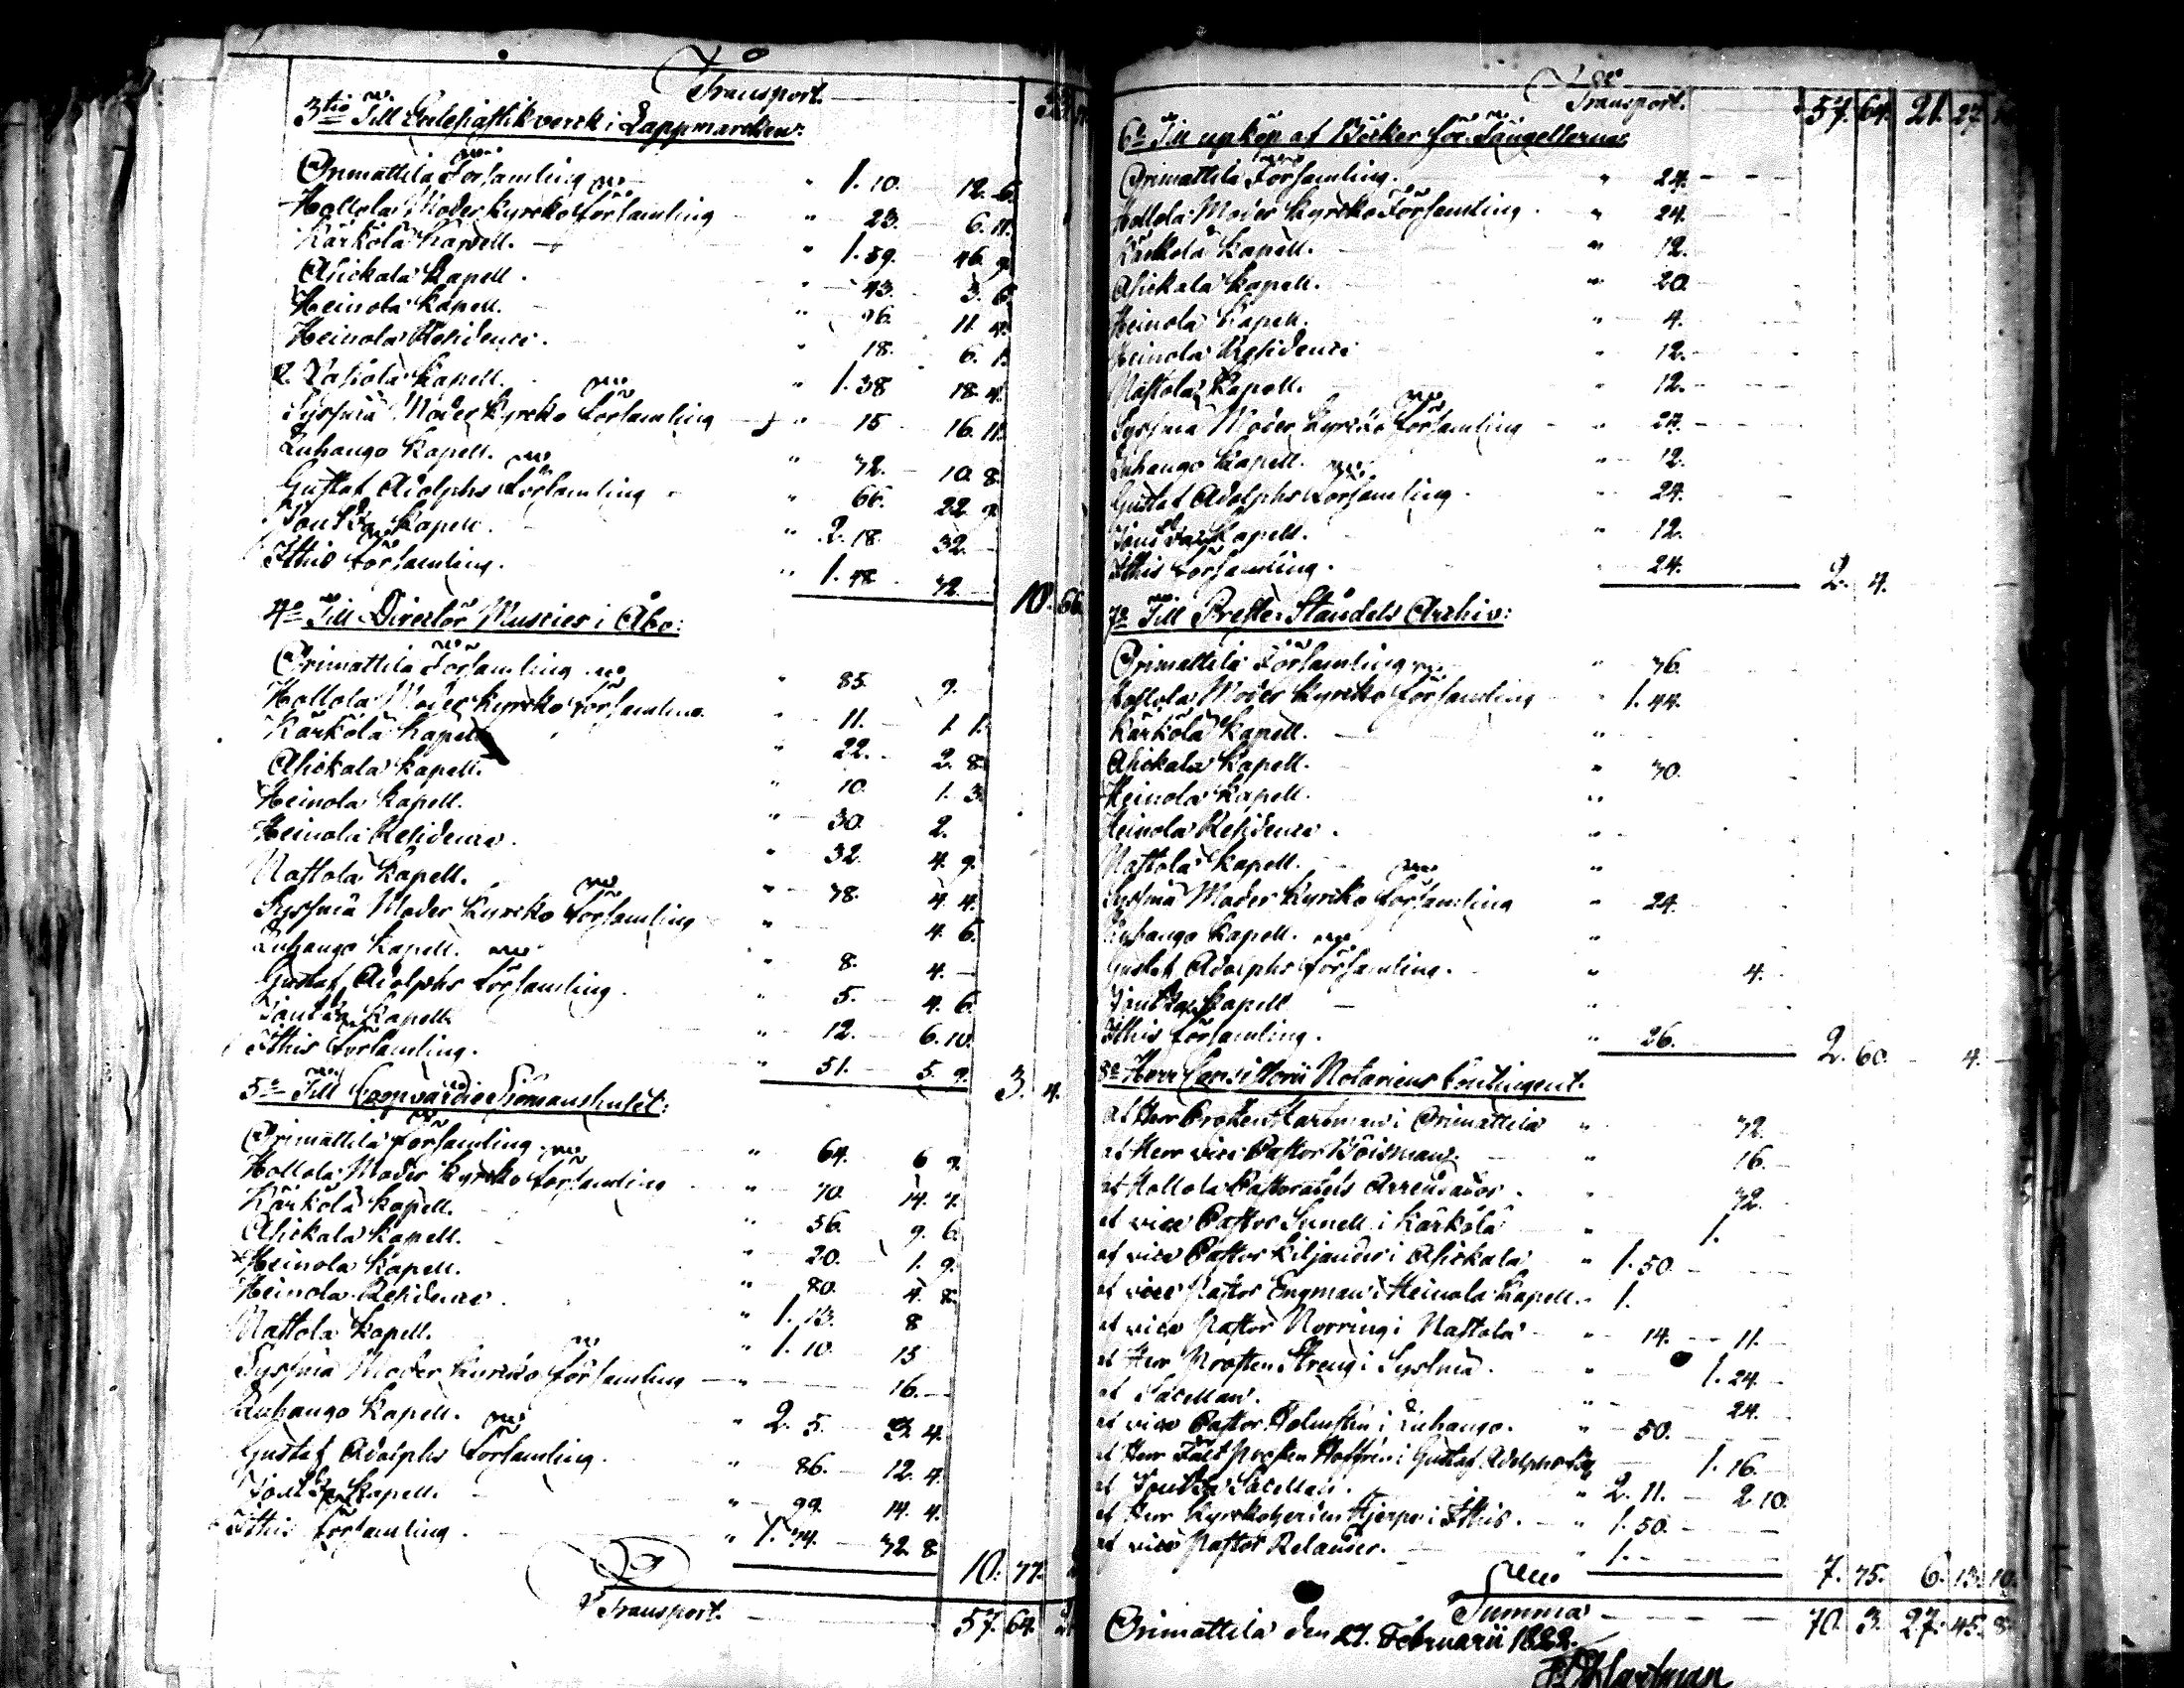 Transport.
3tio Till Ecclesiastikverk i Lappmarcken:
Orimattila Församling " 1. 10. 12. 6.
Hollola Moder Kyrcko församling " 23. 6. 11.
Kärkölä Kapell. " 1. 59. 46. 9.
Asickala Kapell. " 43. 3. 6.
Heinola Kapell. " 26. 11. 4.
Heinola Residence. " 18. 6. 1.
Kapell. " 1. 38 18. 4.
Syssmä Moder Kyrcko församling " 15 16. 11.
Luhango Kapell. " 72. 10. 8.
Gustaf Adolphs församling " 66. 22. 2
Joutza Kapell. " 2. 18. 32.
Ithis församling. " 1. 48. 72.
10. 66.
4o Till Director Musices i Åbo:
Orimattila Församling " 85. 9.
Hollola Moder Kyrcko församling " 11. 1. 1.
Kärkölä Kapell " 22. 2. 8.
Asickala Kapell. " 10. 1. 3.
Heinola Kapell. " 30. 2.
Heinola Residence. " 32. 4. 9.
Nastola Kapell. " 78. 4. 4.
Syssmä Moder Kyrcko församling " 4. 6.
Luhango Kapell. " 8. 4. —
Gustaf Adolphs församling " 5. 4. 6.
Joutza Kapell. " 12. 6. 10.
Ithis församling. " 51. 5. 9.
3. 4.
5o Till Coopvardie Siömanshuset:
Orimattila församling " 64. 6 9.
Hollola Moder Kyrcko församling " 70. 14. 7.
Kärkölä Kapell. " 56. 9. 6.
Asickala Kapell. " 20. 1. 9.
Heinola Kapell. " 80. 4. 8.
Heinola Residence. " 1. 13. 8
Nastola Kapell. " 1. 10. 13
Syssmä Moder Kyrcko församling " 16. —
Luhango Kapell. " 2. 5. 3. 4.
Gustaf Adolphs församling. " 86. 12. 4.
Joutza Kapell. " 99. 14. 4.
Ithis församling. " 1. 74. 72. 8.
10. 77.
Transport. 57. 64.
Transport. 57. 64. 21. 27.
6o Till upköp af Böcker för Fängelserna:
Orimattila Församling. " 24.
Hollola Moder Kyrcko Församling. " 24.
Kärkölä Kapell. " 12.
Asickala Kapell. " 20.
Heinola Kapell. " 4.
Heinola Residence " 12.
Nastola Kapell. " 12.
Syssmä Moder Kyrcko församling " 24.
Luhango Kapell. " 12.
Gustaf Adolphs församling. " 24.
Joutza Kapell. " 12.
Ithis församling. " 24.
2. 4.
7o Till Preste Ståndets Archiv:
Orimattila Församling " 76.
Hollola Moder Kyrcko församling " 1. 44.
Kärkölä Kapell. "
Asickala Kapell. " 70.
Heinola Kapell. "
Heinola Residence. "
Nastola Kapell. "
Syssmä Moder Kyrcko församling " 24.
Luhango Kapell. "
Gustaf Adolphs församling. " 4.
Joutza Kapell "
Ithis församling. " 26.
2. 60. 4.
8o Herr Consistorii Notariens Contingent.
af Herr Prosten Hartman i Orimattila " 72.
af Herr vice Pastor Böisman. " 16.
af Hollola Pastoratets Arrendator. " 72.
af vice Pastor Sunell i Kärkölä " 1.
af vice Pastor Kiljander i Asickala " 1. 50.
af vice Pastor Engman i Heinola Kapell. " 1.
af vice Pastor Norring i Nastola " 14. 11.
af Herr Prosten Streng i Syssmä. " 1. 24.
af Sacellan. " 24.
af vice Pastor Holmstén i Luhango. " 50.
af Herr Fält Prosten Hoffrén i Gustaf Adolphs 1. 16.
af Joutza Sacellan. " 2. 11. 2. 10.
af Herr Kyrckoherden Hjerpe i Ithis. " 1. 50.
af vice Pastor Relander. " 1.
7. 75. 6. 13. 10.
Summa 70. 3. 27. 45. 8.
Orimattila den 27. Februarii 1822.
Hartman